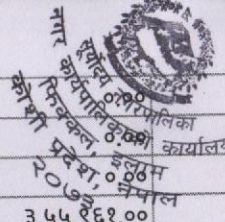 सूर्योदय नगरपालिका
नगर कार्यपालिकाको कार्यालय
फिक्कल, इलाम
कोशी प्रदेश, नेपाल
२०७३
०.००
०.००
३५५१६१.००